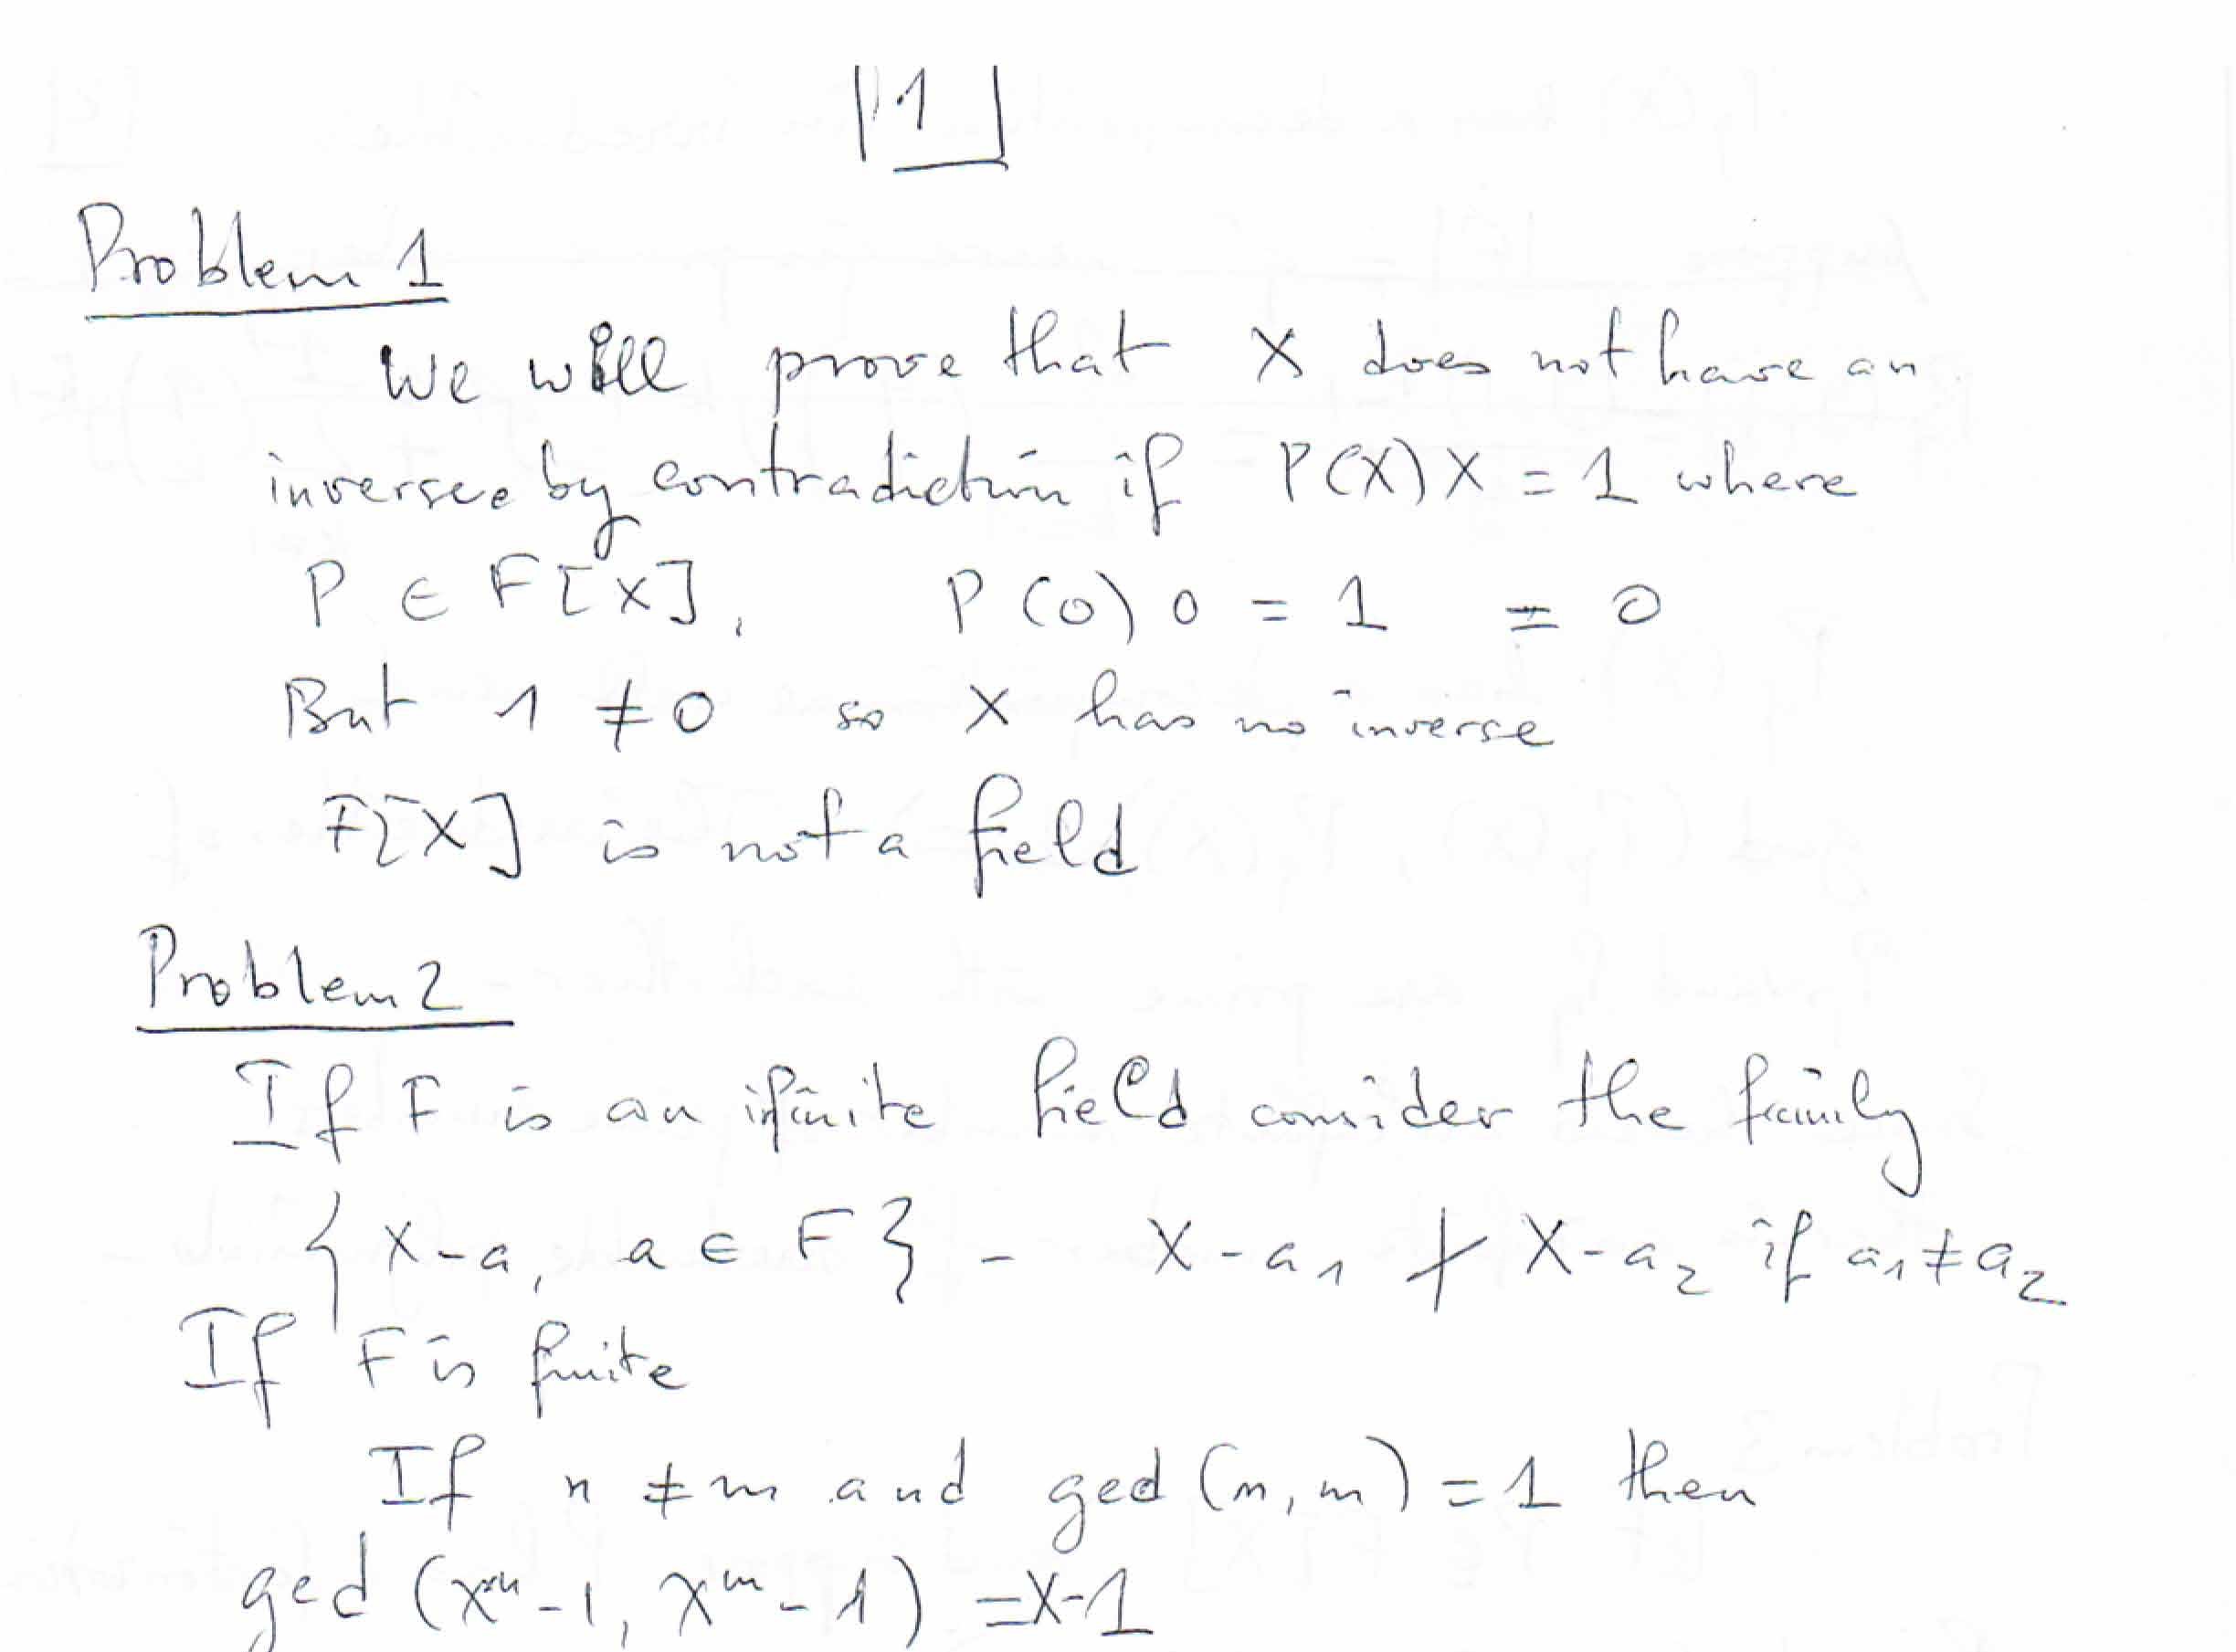 1
Problem 1
We will prove that X does not have an
inversee by contradiction if P(X)X = 1 where
P ∈ F[X], P(0)0 = 1 = 0
But 1 ≠ 0 so X has no inverse
F[X] is not a field
Problem 2
If F is an ifinite field consider the family
{X-a, a ∈ F} - X-a₁ ≠ X-a₂ if a₁≠a₂
If F is finite
If n ≠ m and gcd (n, m) = 1 then
gcd (Xⁿ-1, Xᵐ-1) =X-1